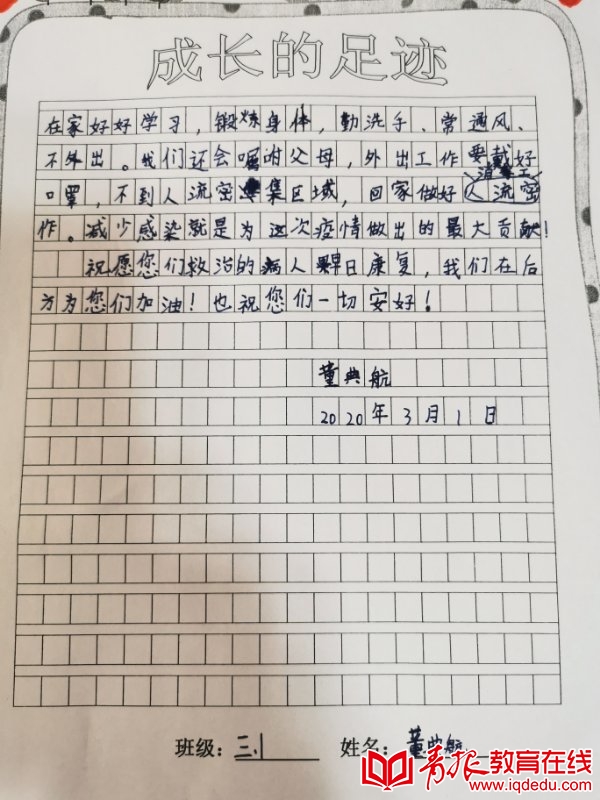 成长的足迹
在家好好学习，锻炼身体，勤洗手、常通风、
不外出。我们还会嘱咐父母，外出工作要戴好
口罩，不到人流密集区域，回家做好消毒工
作。减少感染就是为这次疫情做出的最大贡献！
祝愿您们救治的病人早日康复，我们在后
方为您们加油！也祝您们一切安好！
董典航
2020年3月1日
班级：三.1 姓名：董典航
青报教育在线
www.iqdedu.com